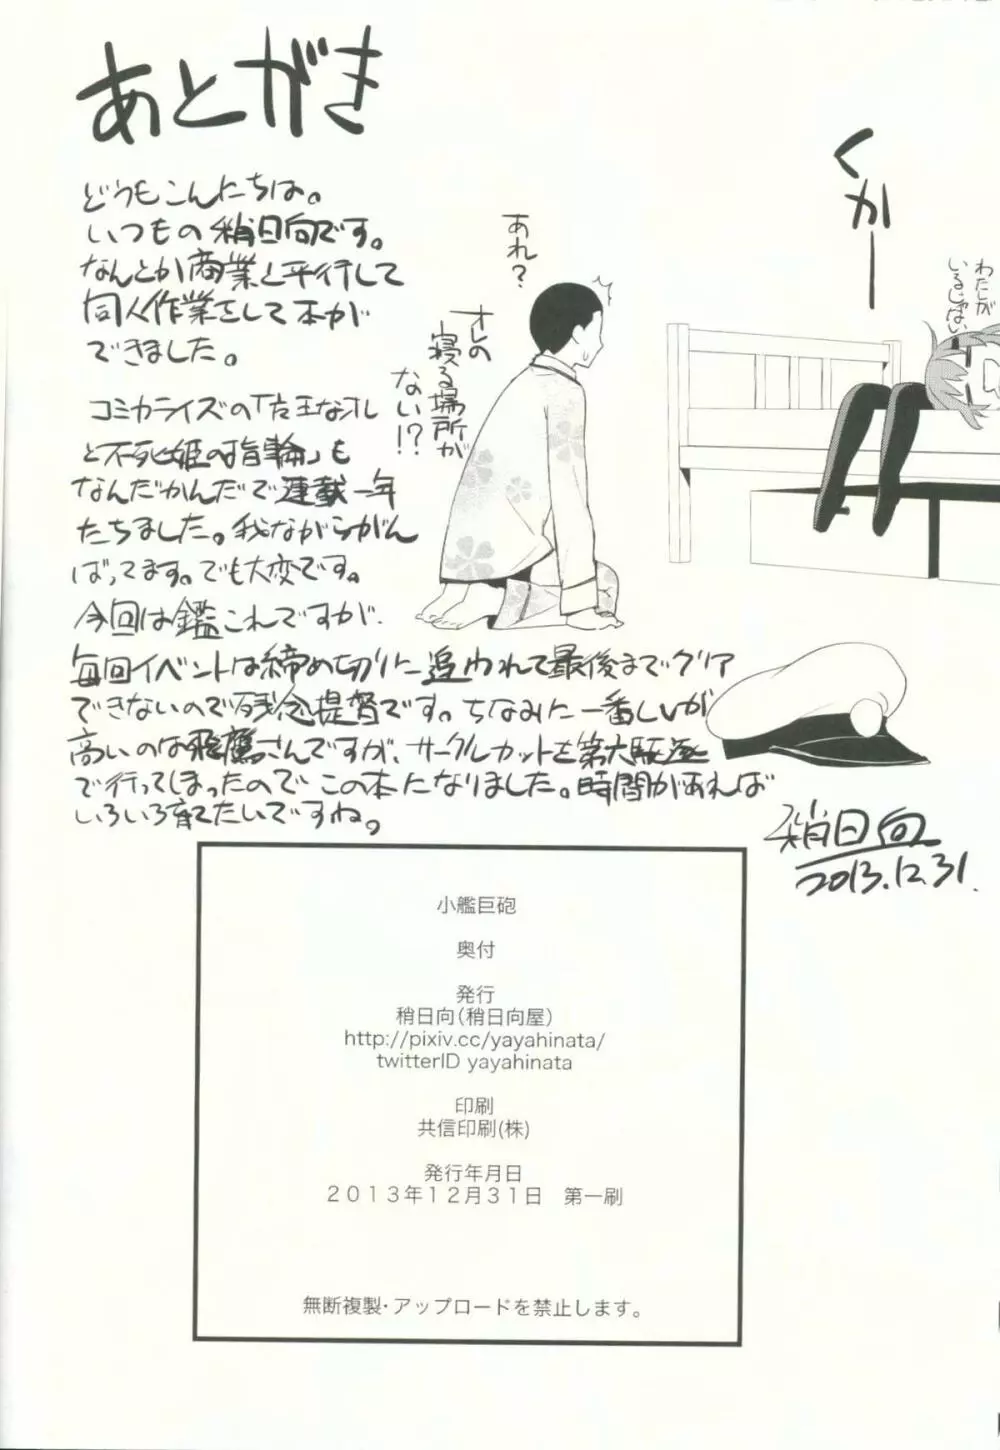 あとがき
どうもこんにちは。
いつもの稍日向です。
なんとか商業と平行して
同人作業をして本が
できました。
コミカライズの「女王なオレ
と不死姫の指輪」も
なんだかんだで連載一年
たちました。我ながらがん
ばってます。でも大変です。
今回は鑑これですが、
毎回イベントは締め切りに追われて最後までクリア
できないので残念提督です。ちなみに一番しLvが
高いのは飛鷹さんですが、サークルカットを第六駆逐
で行ってしまったのでこの本になりました。時間があれば
いろいろ育てたいですね。
くかー
わたしが
いるじゃない
あれ?
オレの
寝る場所が
ない!?
稍日向
2013.12.31.
小艦巨砲
奥付
発行
稍日向(稍日向屋)
http://pixiv.cc/yayahinata/
twitterID yayahinata
印刷
共信印刷(株)
発行年月日
2013年12月31日 第一刷
無断複製・アップロードを禁止します。